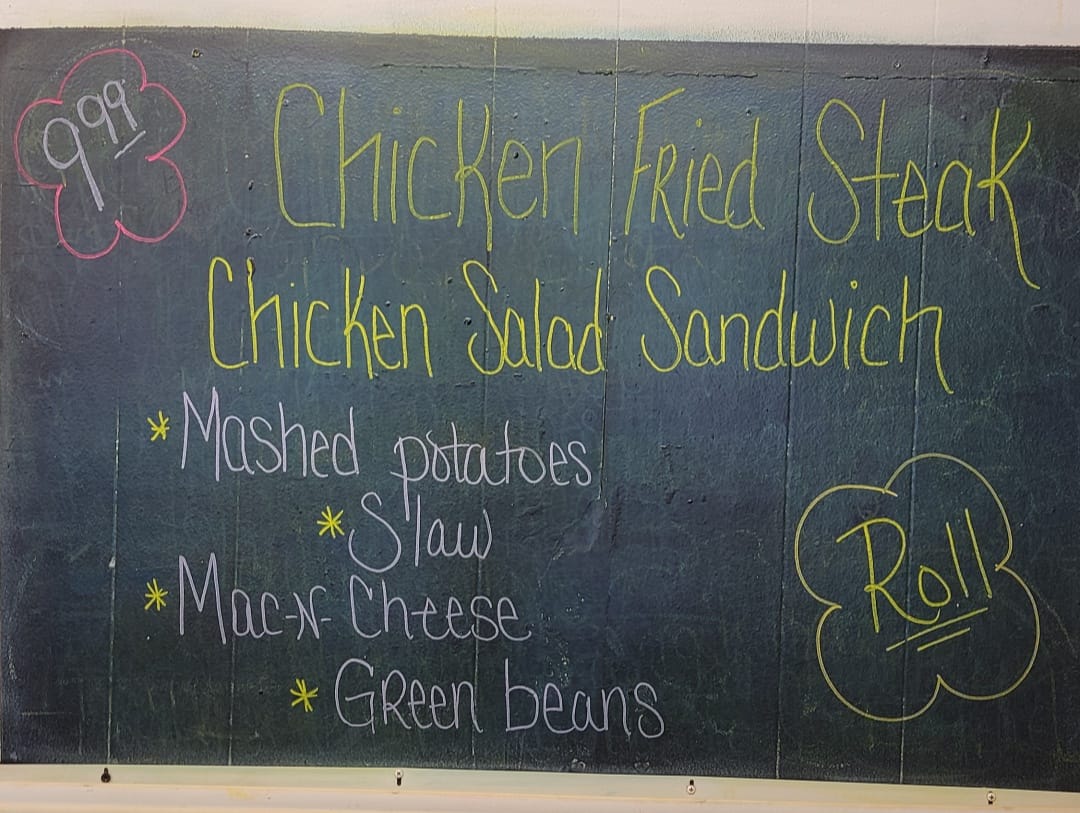 9.99
Chicken Fried Steak
Chicken Salad Sandwich
*Mashed potatoes
*Slaw
*Mac-N-Cheese
*Green beans
Roll